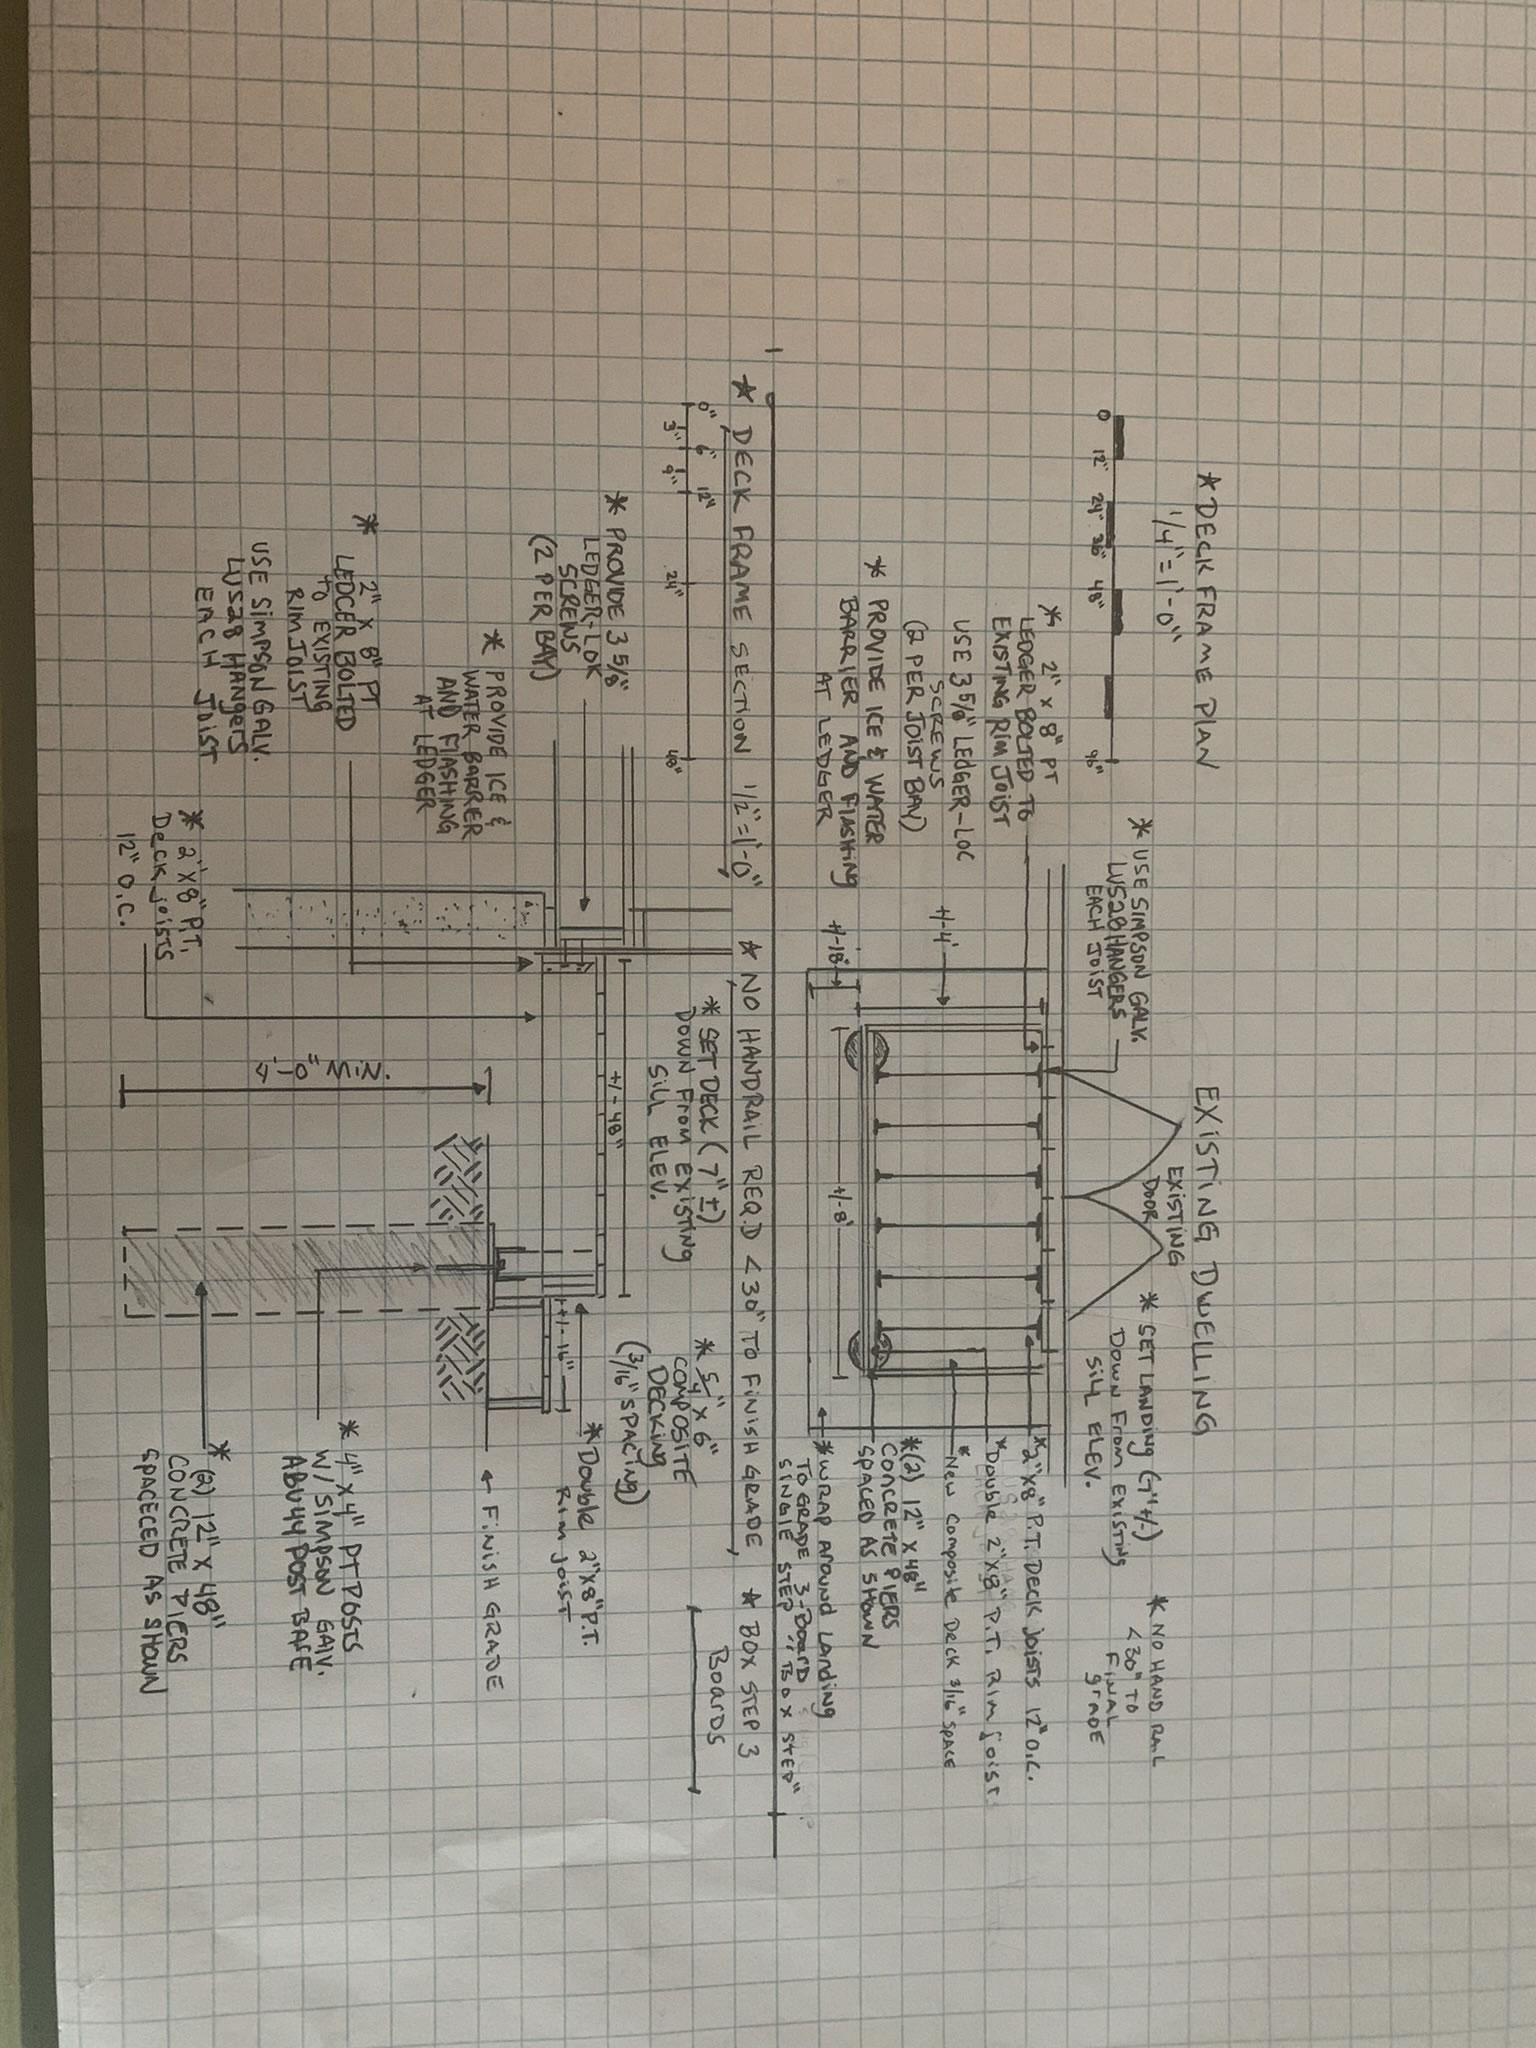 * DECK FRAME PLAN
1/4" = 1'-0"
0 12" 24" 36" 48" 96"
EXISTING DWELLING
EXISTING
DOOR
* USE SIMPSON GALV.
LUS28 HANGERS
EACH JOIST
* SET LANDING (7" +/-)
DOWN FROM EXISTING
SILL ELEV.
* NO HAND RAIL
<30" TO
FINAL
GRADE
* 2" x 8" PT
LEDGER BOLTED TO
EXISTING RIM JOIST
USE 3 5/8" LEDGER-LOC
SCREWS
(2 PER JOIST BAY)
* PROVIDE ICE & WATER
BARRIER AND FLASHING
AT LEDGER
+/-4'
+/-18"
+/-8'
* 2"x8" P.T. DECK JOISTS 12" O.C.
* DOUBLE 2"x8" P.T. RIM JOIST
* NEW COMPOSITE DECK 3/16" SPACE
* (2) 12" x 48"
CONCRETE PIERS
SPACED AS SHOWN
* WRAP AROUND LANDING
TO GRADE 3-BOARD
SINGLE STEP "BOX STEP"
* DECK FRAME SECTION 1/2" = 1'-0"
* NO HANDRAIL REQ.D <30" TO FINISH GRADE
* BOX STEP 3
BOARDS
0" 3" 6" 9" 12" 24" 48"
* SET DECK (7" ±)
DOWN FROM EXISTING
SILL ELEV.
* 5/4" x 6"
COMPOSITE
DECKING
(3/16" SPACING)
* PROVIDE 3 5/8"
LEDGER-LOK
SCREWS
(2 PER BAY)
+/- 48"
+/- 16"
* DOUBLE 2"x8" P.T.
RIM JOIST
* PROVIDE ICE &
WATER BARRIER
AND FLASHING
AT LEDGER
← FINISH GRADE
* 2" x 8" PT
LEDGER BOLTED
TO EXISTING
RIM JOIST
USE SIMPSON GALV.
LUS28 HANGERS
EACH JOIST
* 4" x 4" PT POSTS
W/ SIMPSON GALV.
ABU44 POST BASE
4'-0" MIN.
* 2"x8" P.T.
DECK JOISTS
12" O.C.
* (2) 12" x 48"
CONCRETE PIERS
SPACECED AS SHOWN